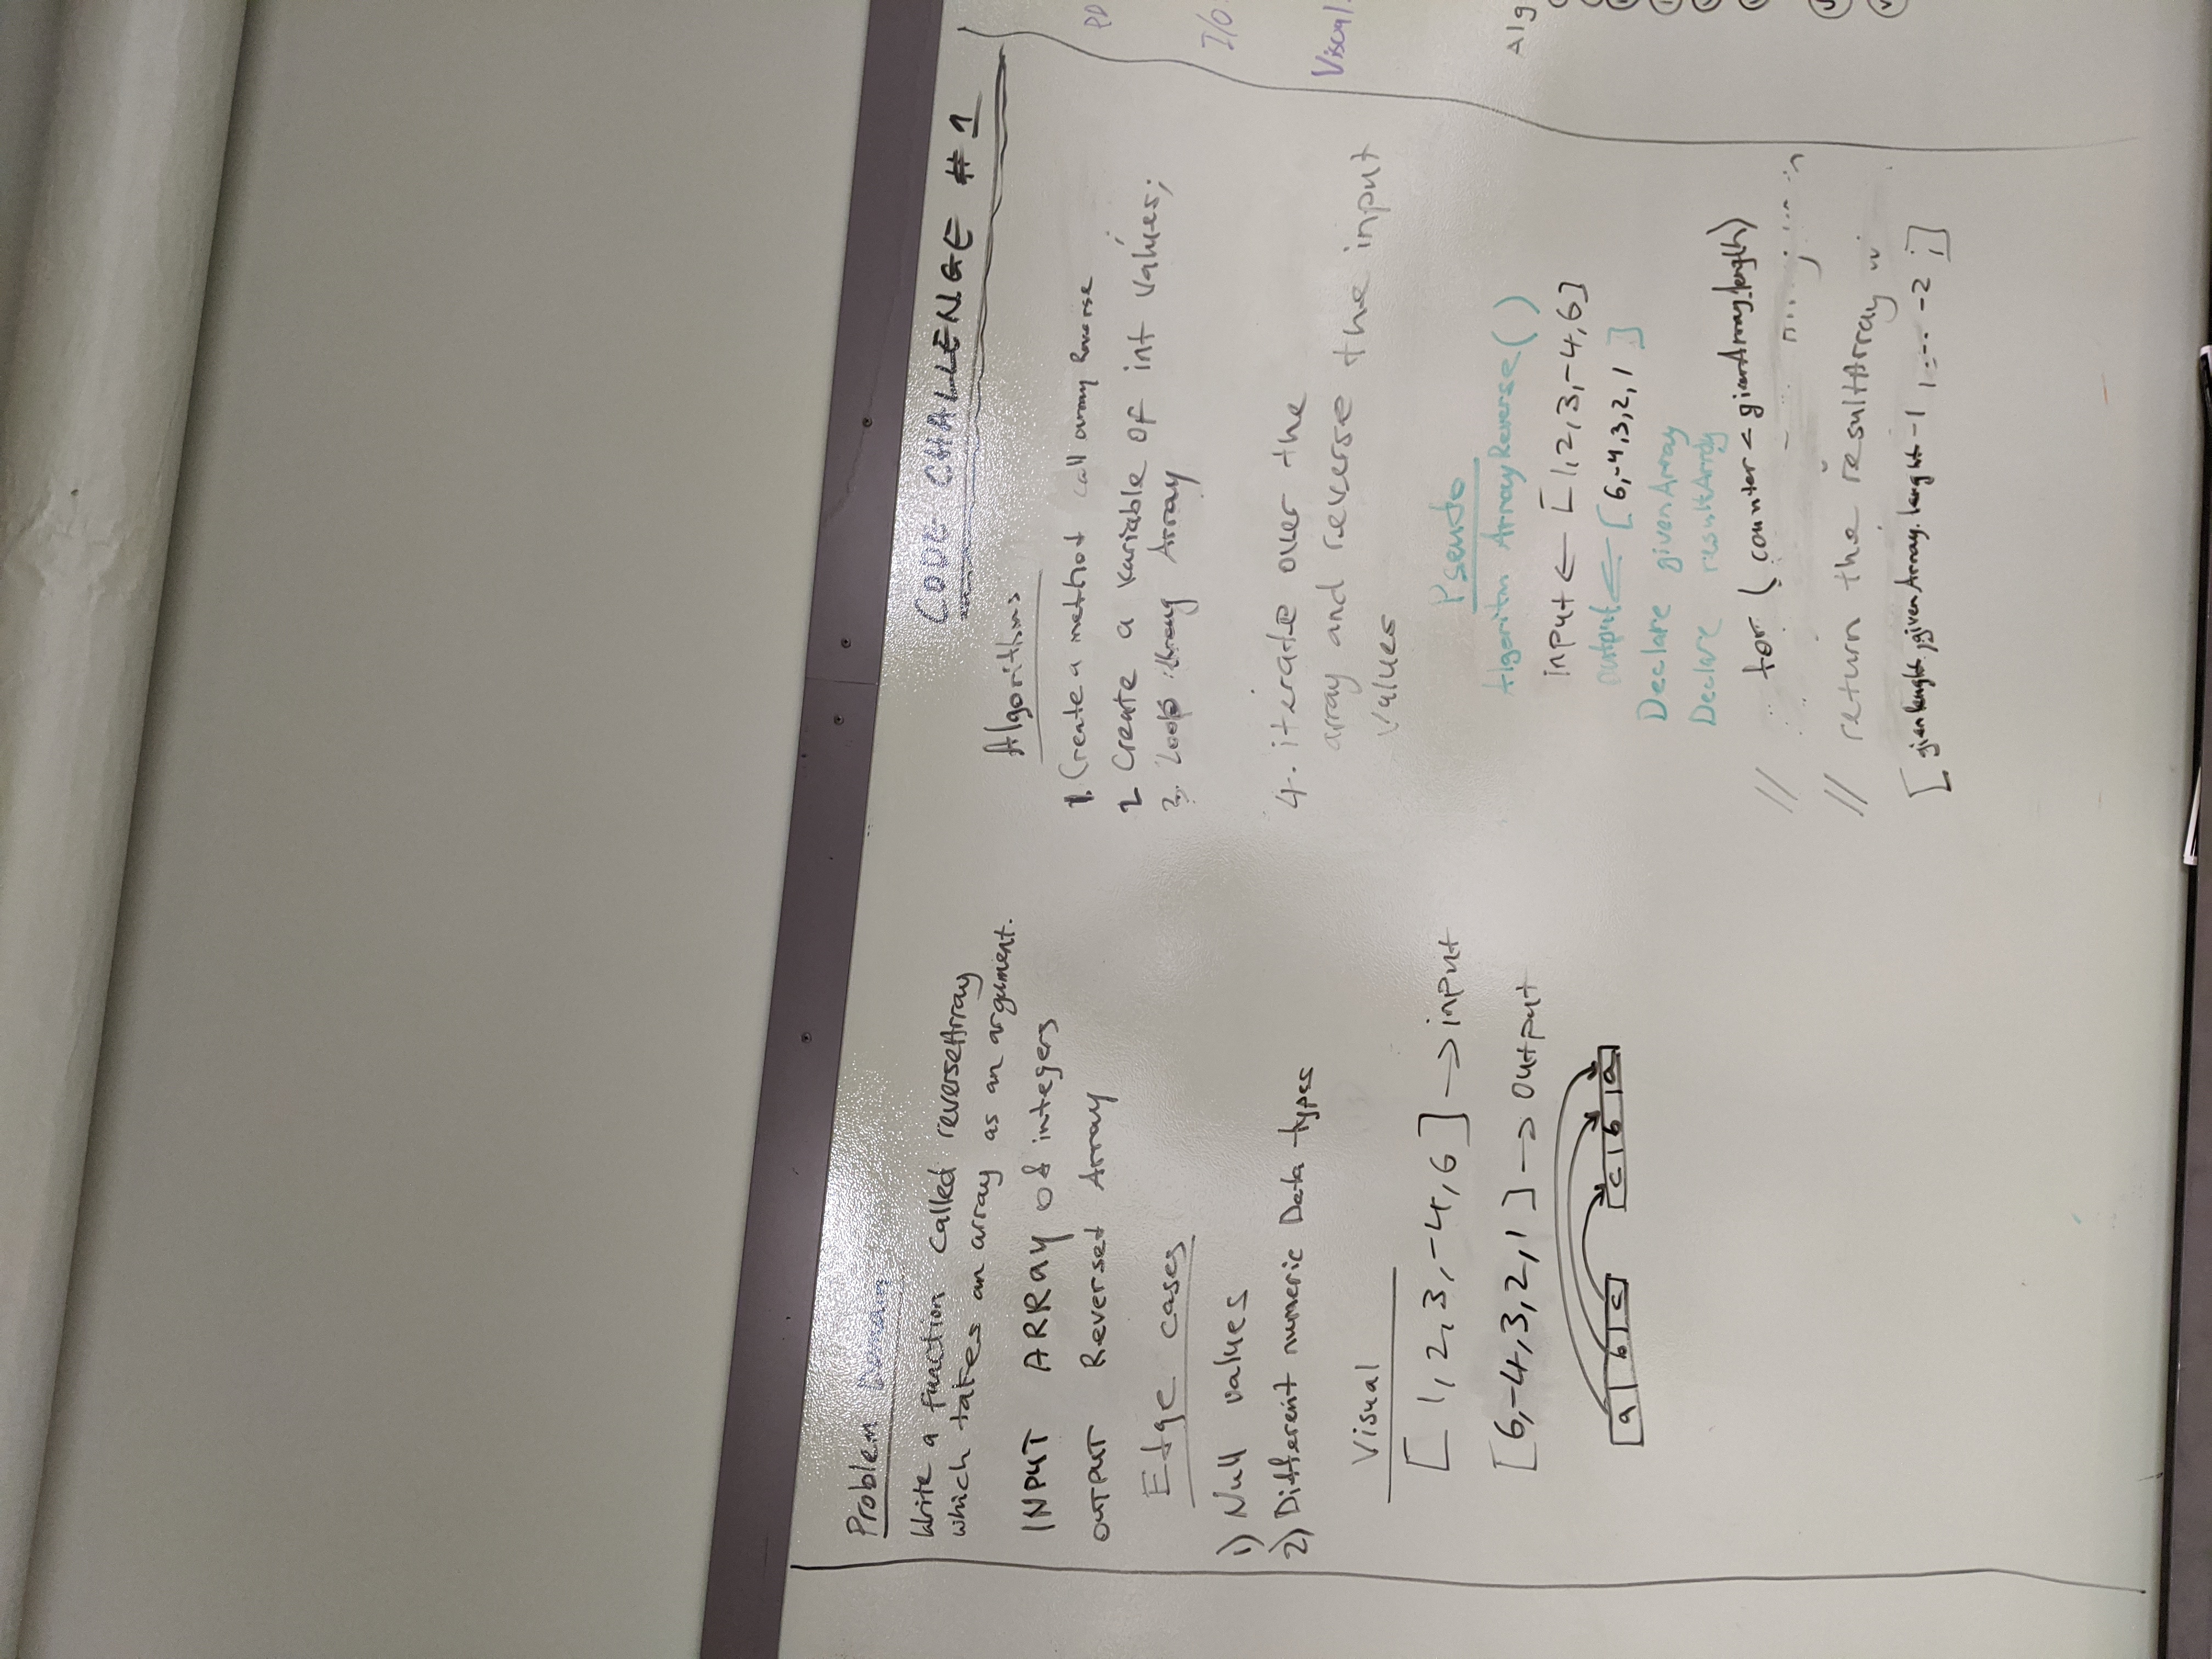 Problem Domain
Write a function called reverseArray
which takes an array as an argument.
INPUT ARRay of integers
OUTPUT Reversed Array
Edge cases
1) Null values
2) Different numeric Data types
Visual
[ 1, 2, 3, -4, 6 ] → input
[6,-4,3,2,1 ] → Output
a b c c b a
CODE CHALLENGE #1
Algorithms
1. Create a method call array Reverse
2 Create a variable of int values;
3. Loop throug Array
4. iterate over the
array and reverse the input
values
Pseudo
Algoritm ArrayReverse()
input ← [1,2,3,-4,6]
output ← [6,-4,3,2,1 ]
Declare givenArray
Declare resultArray
// for ( counter < givenArray.length)
// return the resultArray
[ gienlenght, givenArray.lenght -1 , ... -2 ;]
PD
I/O
Visual.
Alg